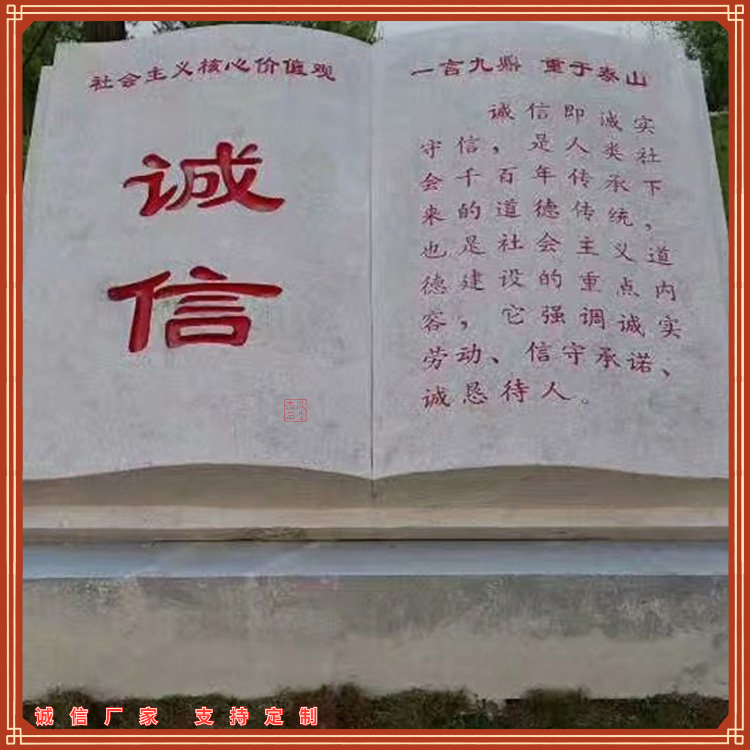 社会主义核心价值观
诚
信
一言九鼎 重于泰山
诚信即诚实
守信，是人类社
会千百年传承下
来的道德传统，
也是社会主义道
德建设的重点内
容，它强调诚实
劳动、信守承诺、
诚恳待人。
诚信厂家 支持定制